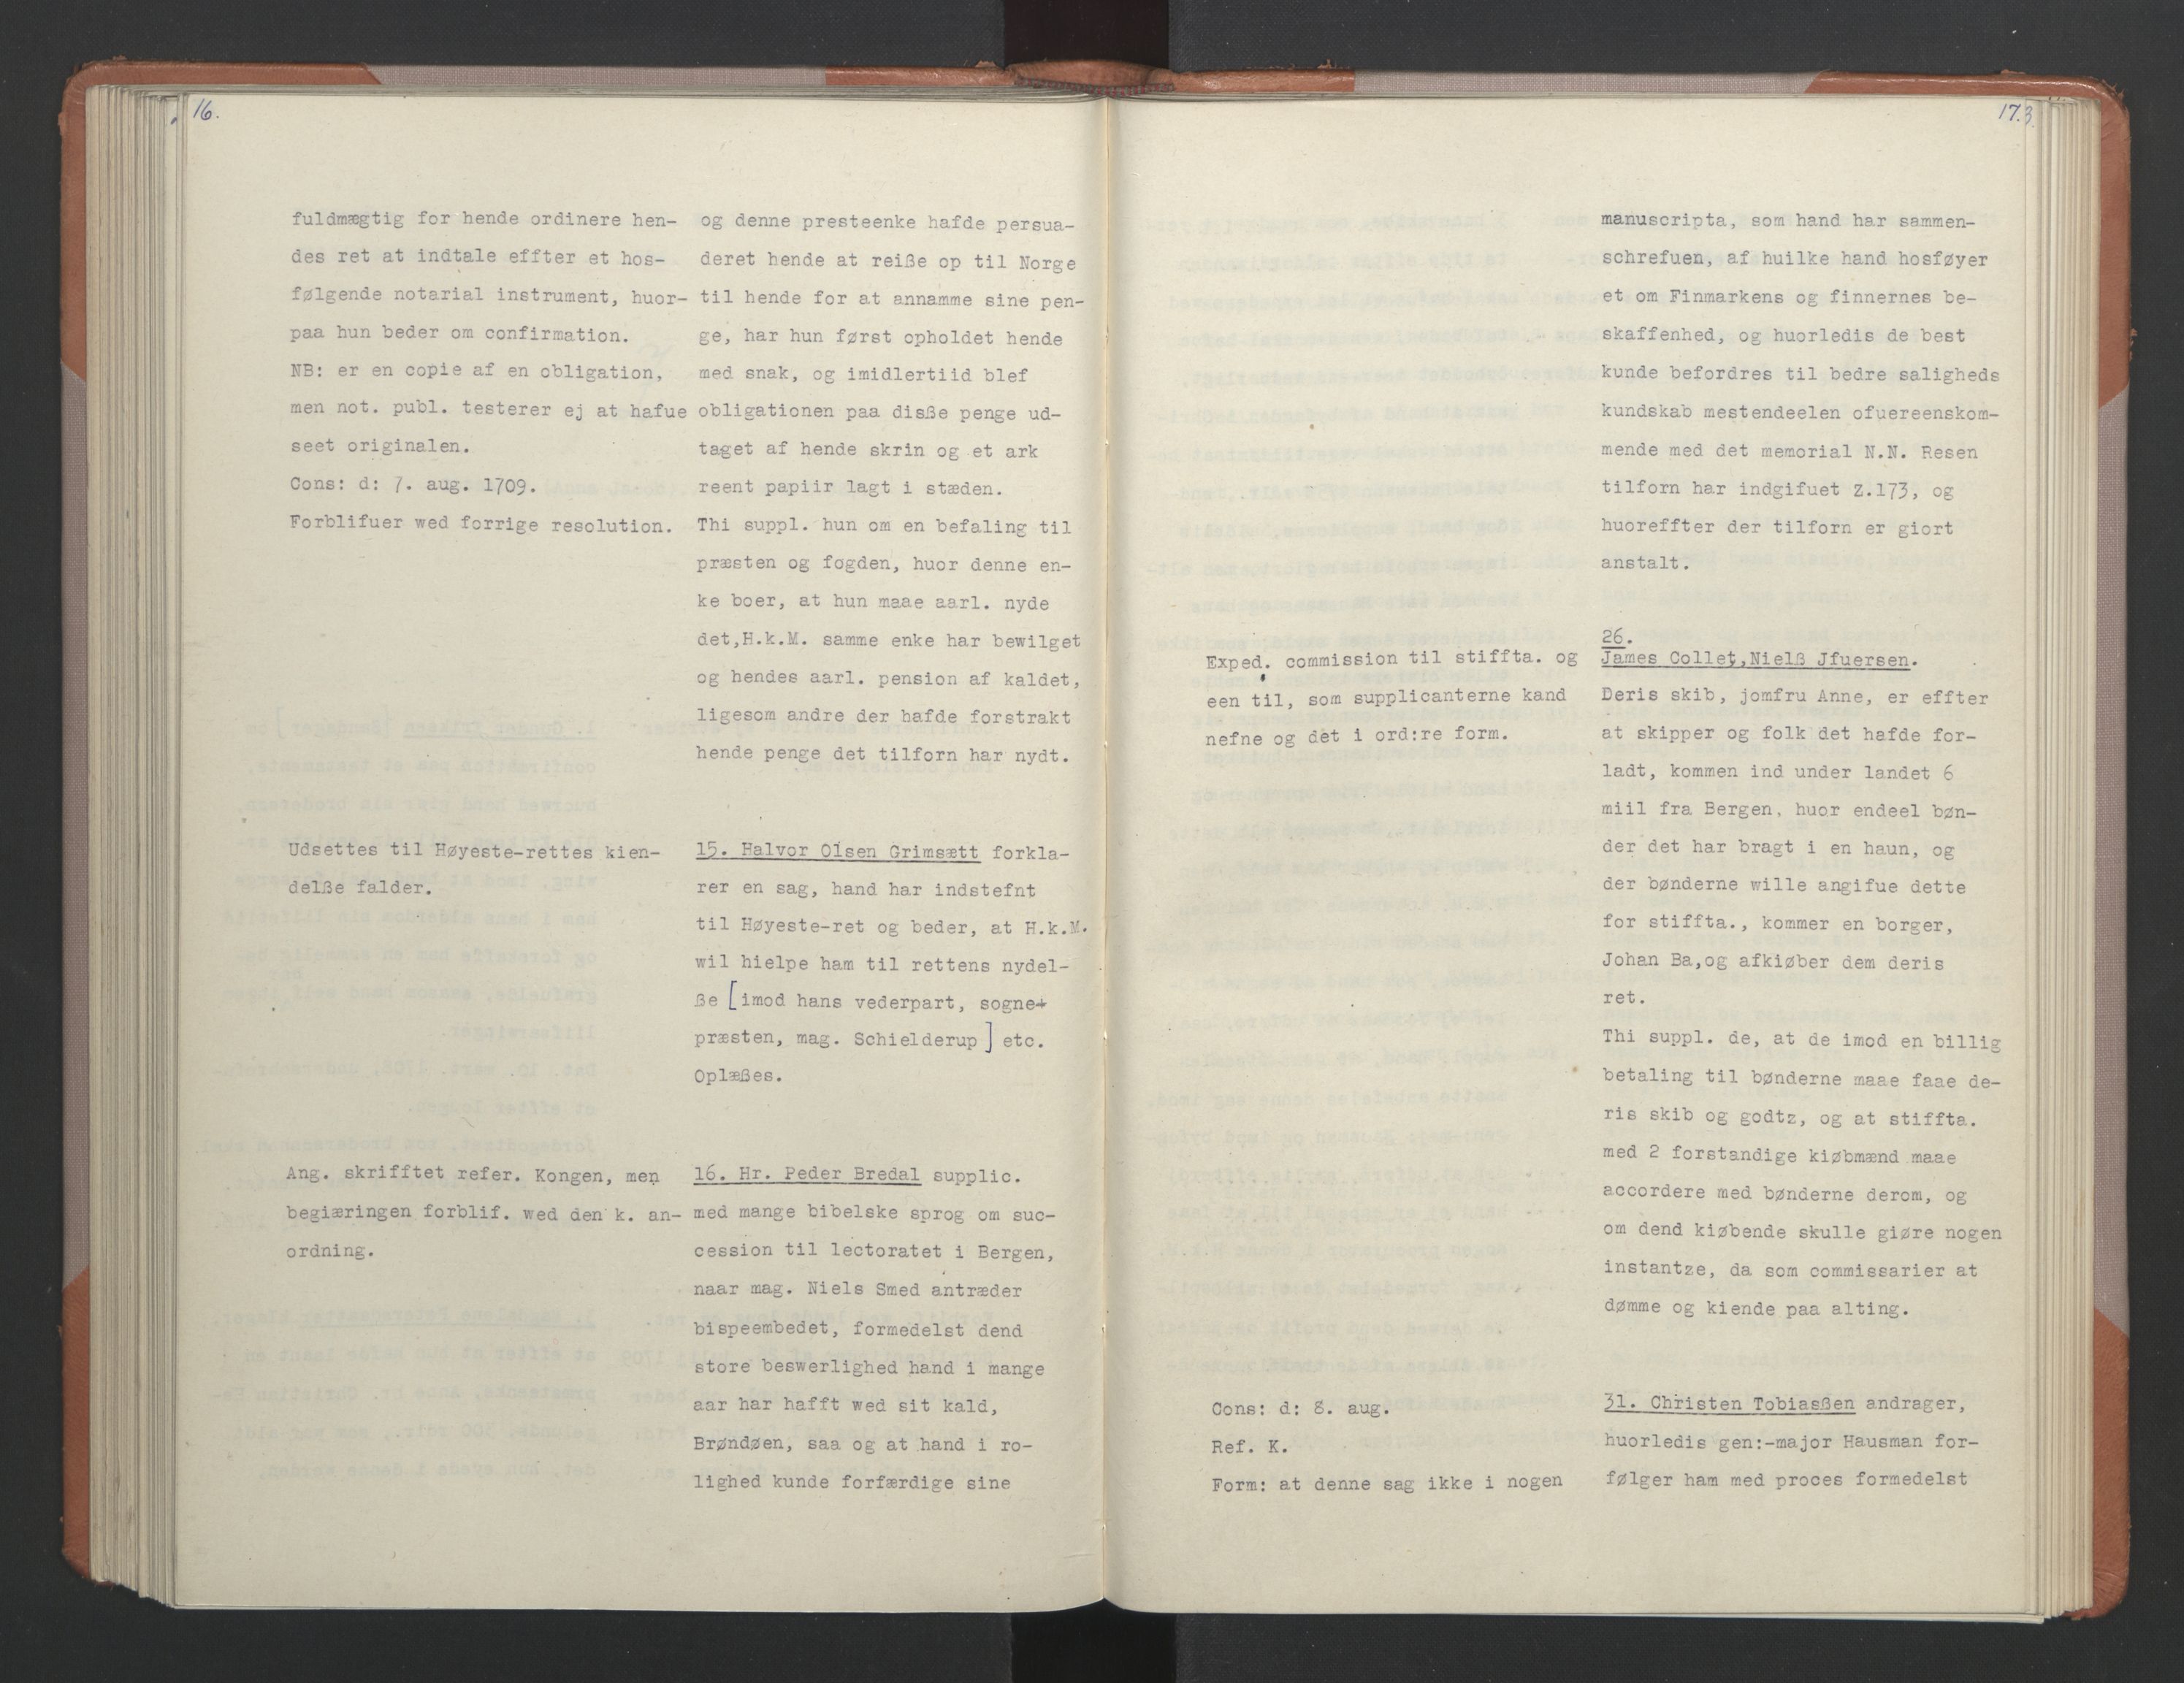 16.
fuldmægtig for hende ordinere hen-
des ret at indtale effter et hos-
følgende notarial instrument, huor-
paa hun beder om confirmation.
NB: er en copie af en obligation,
men not. publ. testerer ej at hafue
seet originalen.
Cons: d: 7. aug. 1709.
Forblifuer wed forrige resolution.
Udsettes til Høyeste-rettes kien-
delße falder.
Ang. skrifftet refer. Kongen, men
begiæringen forblif. wed den k. an-
ordning.
og denne presteenke hafde persua-
deret hende at reiße op til Norge
til hende for at annamme sine pen-
ge, har hun først opholdet hende
med snak, og imidlertiid blef
obligationen paa disße penge ud-
taget af hende skrin og et ark
reent papiir lagt i stæden.
Thi suppl. hun om en befaling til
præsten og fogden, huor denne en-
ke boer, at hun maae aarl. nyde
det,H.k.M. samme enke har bewilget
og hendes aarl. pension af kaldet,
ligesom andre der hafde forstrakt
hende penge det tilforn har nydt.
15. Halvor Olsen Grimsætt forkla-
rer en sag, hand har indstefnt
til Høyeste-ret og beder, at H.k.M.
wil hielpe ham til rettens nydel-
ße [imod hans vederpart, sogne-
præsten, mag. Schielderup] etc.
Oplæßes.
16. Hr. Peder Bredal supplic.
med mange bibelske sprog om suc-
cession til lectoratet i Bergen,
naar mag. Niels Smed antræder
bispeembedet, formedelst dend
store beswerlighed hand i mange
aar har hafft wed sit kald,
Brøndøen, saa og at hand i ro-
lighed kunde forfærdige sine
17.3
Exped. commission til stiffta. og
een til, som supplicanterne kand
nefne og det i ord:re form.
Cons: d: 8. aug.
Ref. K.
Form: at denne sag ikke i nogen
manuscripta, som hand har sammen-
schrefuen, af huilke hand hosføyer
et om Finmarkens og finnernes be-
skaffenhed, og huorledis de best
kunde befordres til bedre saligheds
kundskab mestendeelen ofuereenskom-
mende med det memorial N.N. Resen
tilforn har indgifuet Z.173, og
huoreffter der tilforn er giort
anstalt.
26.
James Collet,Nielß Jfuersen.
Deris skib, jomfru Anne, er effter
at skipper og folk det hafde for-
ladt, kommen ind under landet 6
miil fra Bergen, huor endeel bøn-
der det har bragt i en haun, og
der bønderne wille angifue dette
for stiffta., kommer en borger,
Johan Ba,og afkiøber dem deris
ret.
Thi suppl. de, at de imod en billig
betaling til bønderne maae faae de-
ris skib og godtz, og at stiffta.
med 2 forstandige kiøbmænd maae
accordere med bønderne derom, og
om dend kiøbende skulle giøre nogen
instantze, da som commissarier at
dømme og kiende paa alting.
31. Christen Tobiasßen andrager,
huorledis gen:-major Hausman for-
følger ham med proces formedelst